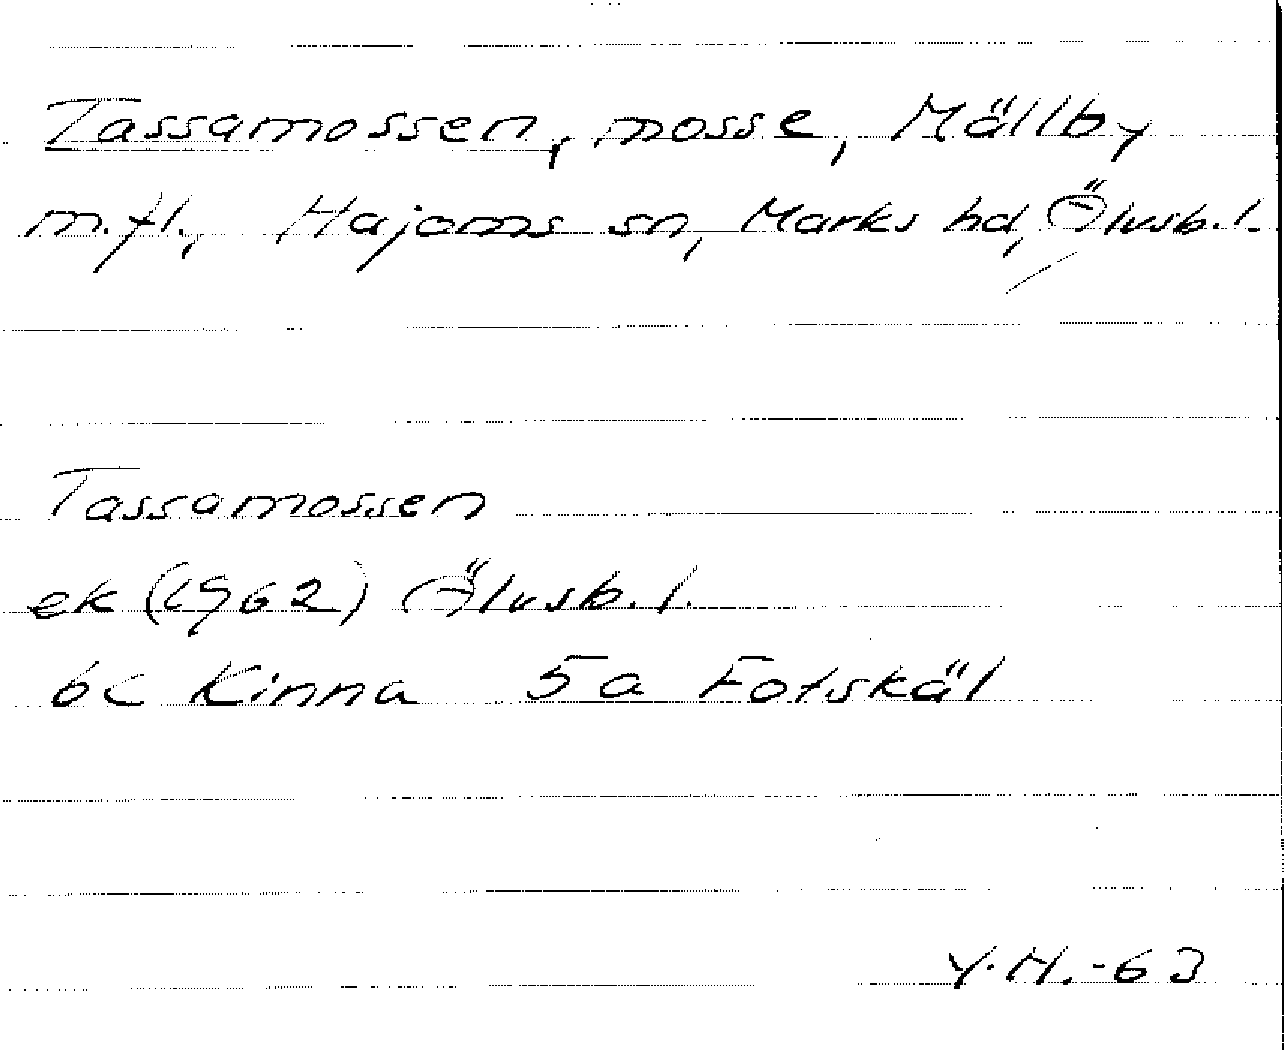 Tassamossen, mosse, Mällby
m.fl., Hajoms sn, Marks hd, Älvsb.l.
Tassamossen
ek (1962) Älvsb.l.
6c Kinna 5a Fotskäl
Y.H.-63